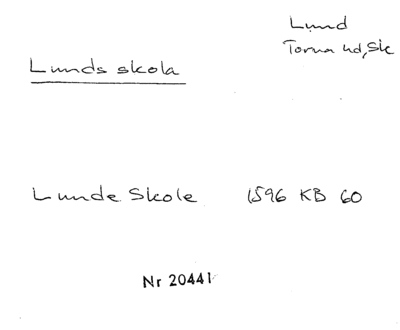 Lund
Torna hd, Sk
Lunds skola
Lunde Skole 1596 KB 60
Nr 20441